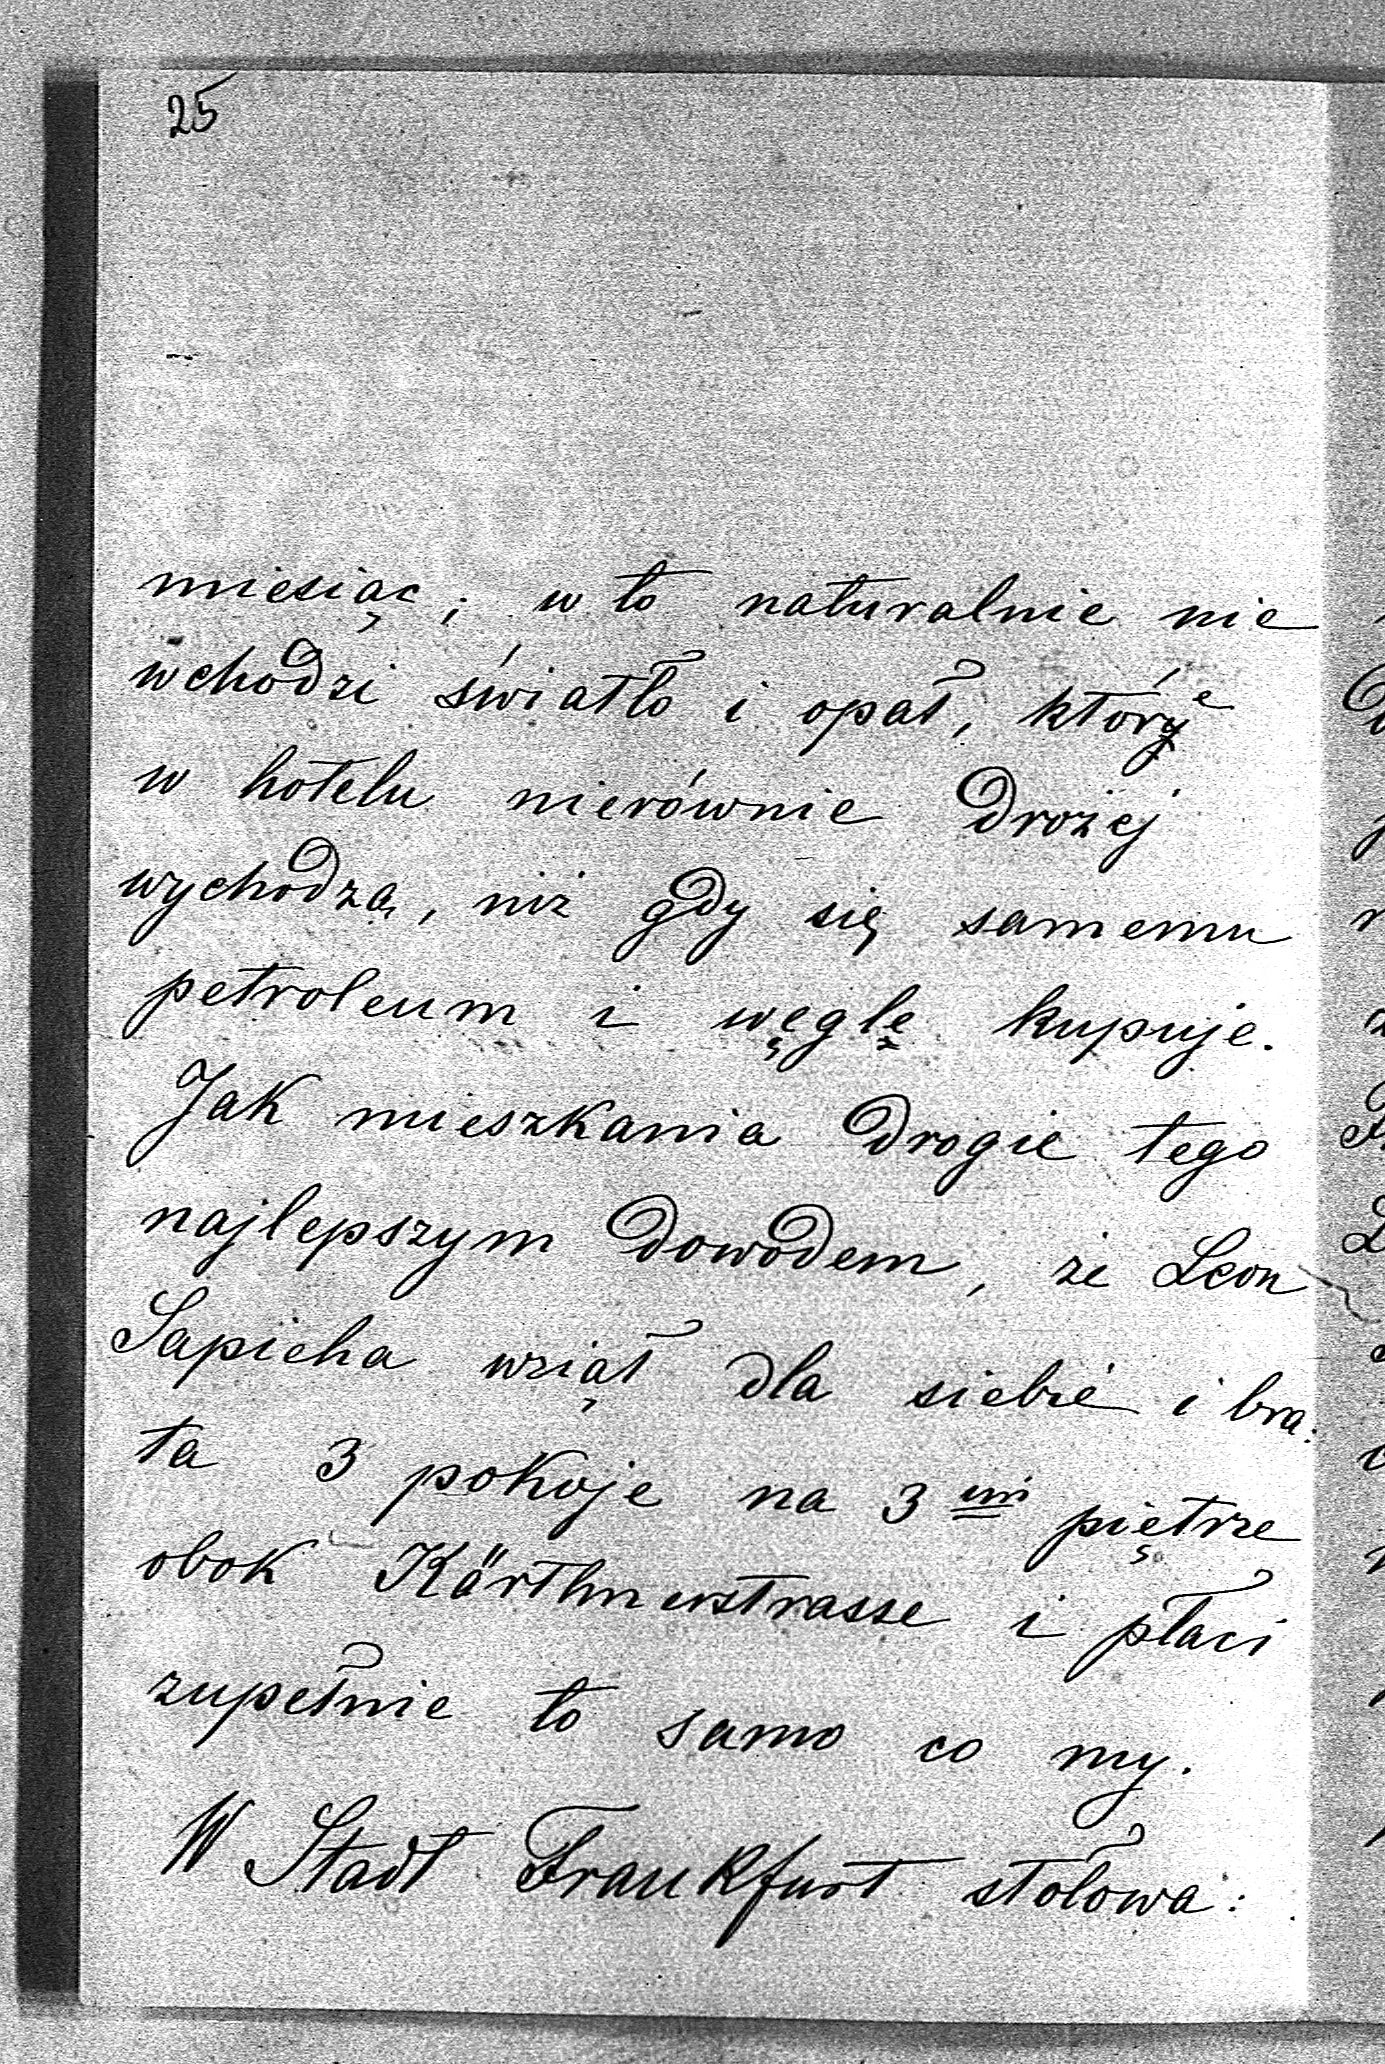 25
miesiąc; w to naturalnie nie
wchodzi światło i opał, które
w hotelu nierównie drożej
wychodzą, niż gdy się samemu
petroleum i węgle kupuje.
Jak mieszkania drogie tego
najlepszym dowodem, że Leon
Sapieha wziął dla siebie i bra:
ta 3 pokoje na 3im piętrze
obok Kärthnerstrasse i płaci
zupełnie to samo co my.
W Stadt Frankfurt stołowa: